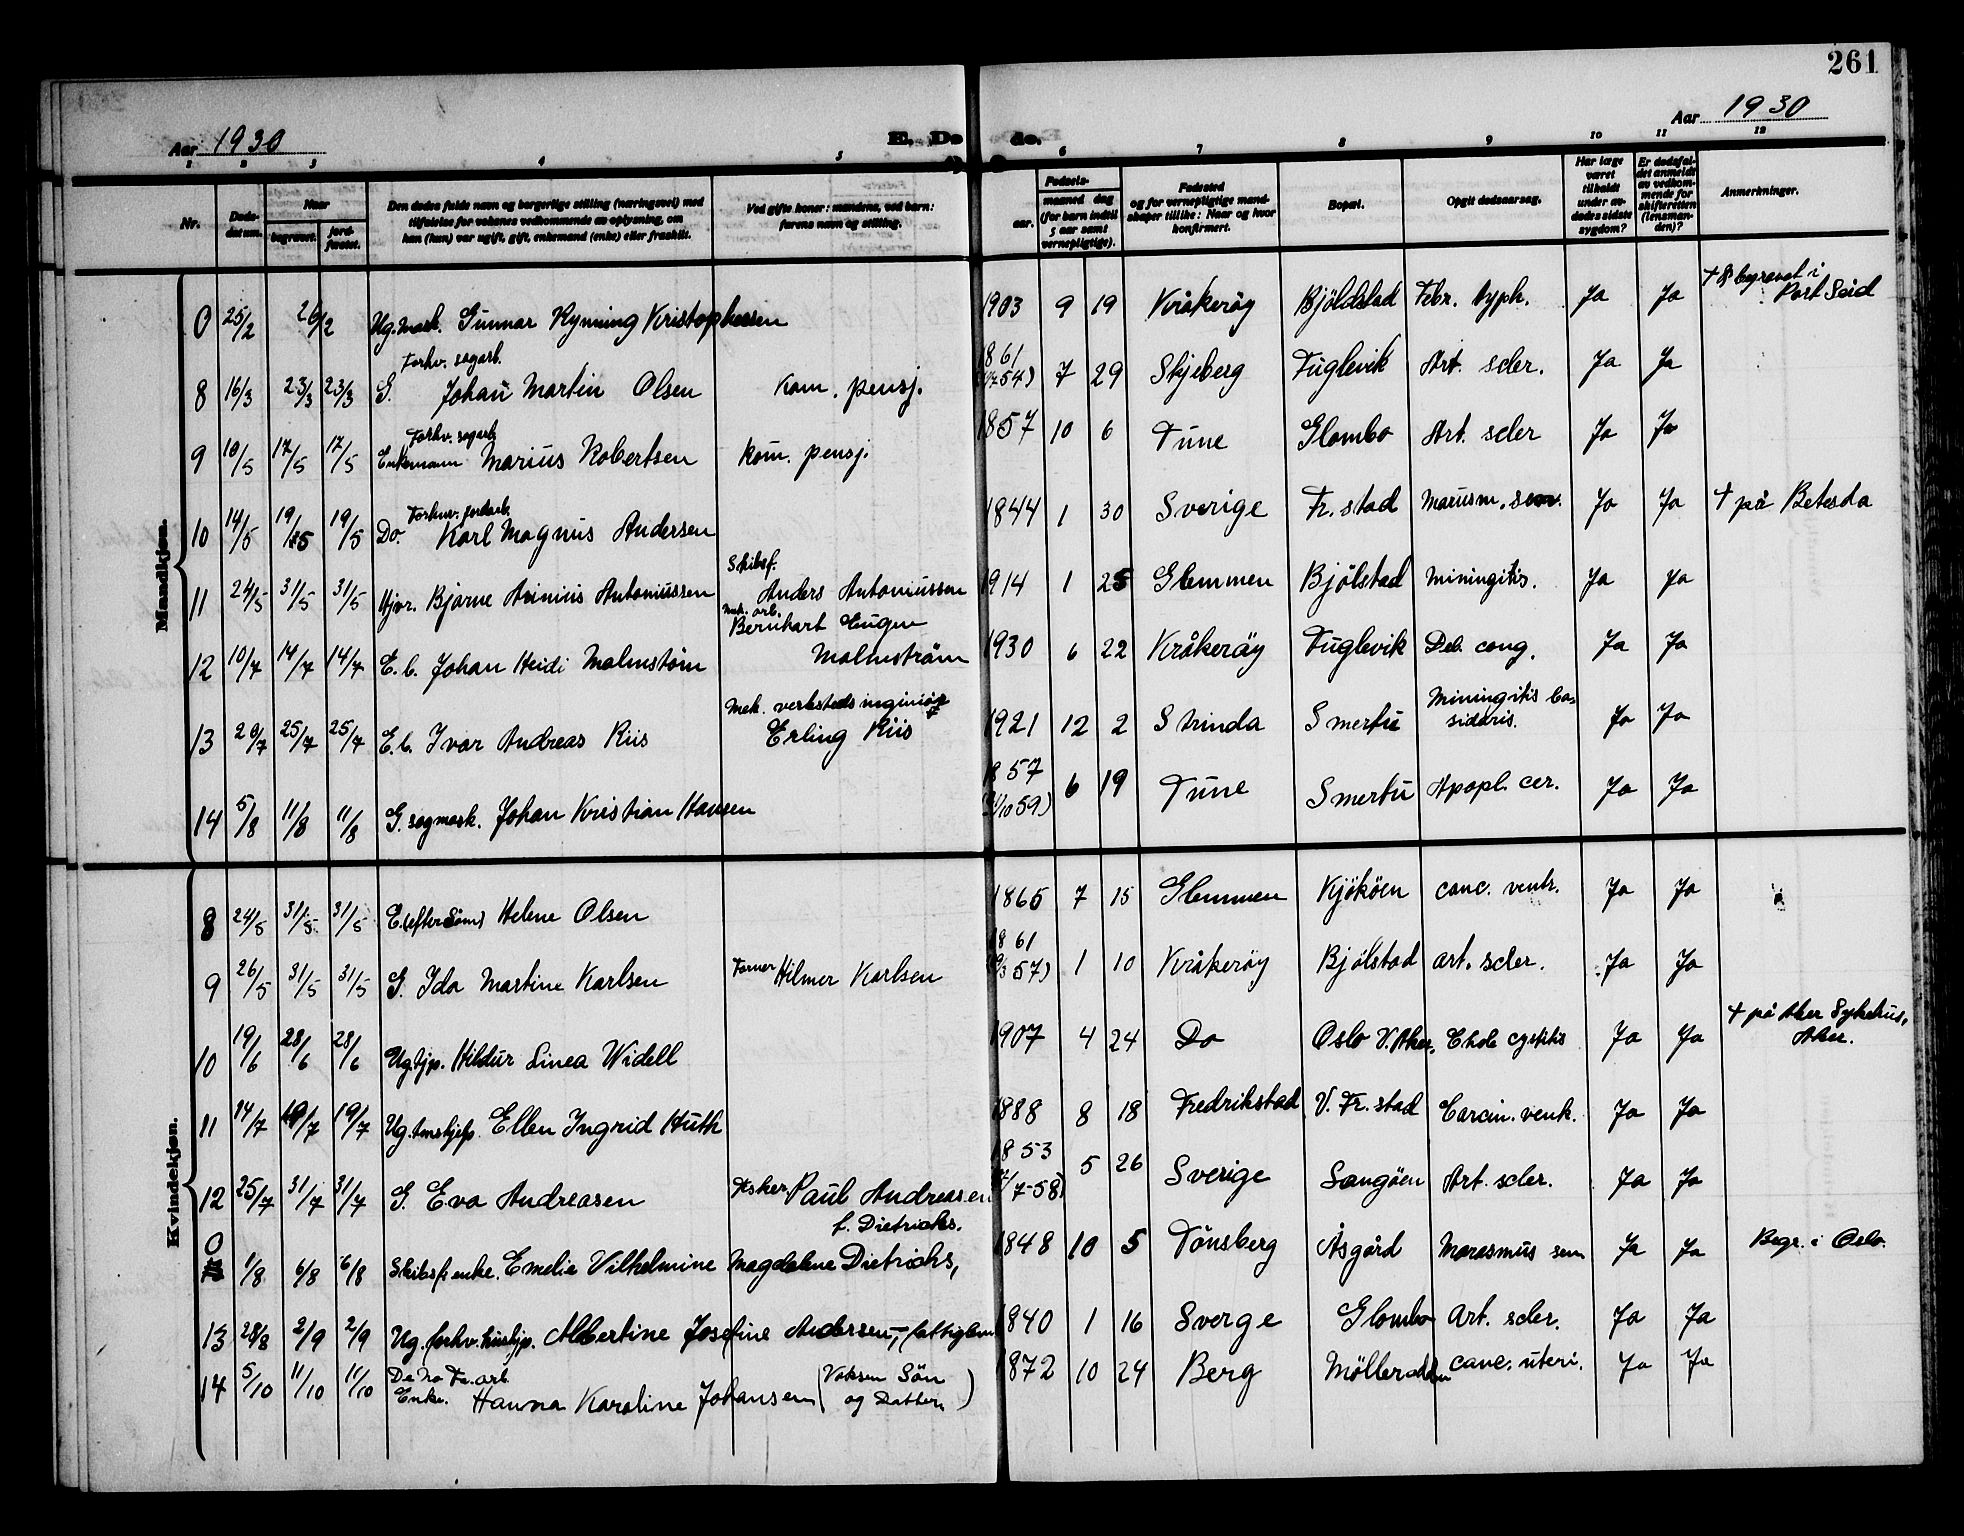 261
Aar 1930 E. Døde. Aar 1930
1 2 3 4 5 6 7 8 9 10 11 12
Nr. Døds-datum. Naar begravet. jord-fæstet. Den dødes fulde navn og borgerlige stilling (næringsvei) med tilføielse for voksnes vedkommende av oplysning, om han (hun) var ugift, gift, enkemand (enke) eller fraskilt. Ved gifte koner: mandens, ved barn: farens navn og stilling. Fødsels- aar. maaned dag (for barn indtil 5 aar samt vernepligtige). Fødested og for vernepligtige mandskaper tillike: Naar og hvor konfirmert. Bopæl. Opgit dødsaarsag. Har læge været tilkaldt under avdødes sidste sygdom? Er dødsfaldet anmeldt av vedkommende for skifteretten (lensmanden)? Anmerkninger.
Mandkjøn.
0 25/2 26/2 Ug. mask. Gunnar Ryming Kristophersen 1903 9 19 Kråkerøy Bjöldstad Febr. typh. Ja Ja † & begravet i Port Said
Forhv. sagarb.
8 16/3 23/3 23/3 G. Johan Martin Olsen Kom. pensj. 1861 54) 7 29 Skjeberg Fuglevik Art. scler. Ja Ja
Forhv. sagarb.
9 10/5 17/5 17/5 Enkemann Marius Robertsen Kom. pensj. 1857 10 6 Tune Glombo Art. scler Ja Ja
10 14/5 19/5 19/5 Do. Karl Magnus Andersen 1844 1 30 Sverige Fr. stad sen. Ja Ja † på Betesda
Skibsf.
11 24/5 31/5 31/5 Hjvr. Bjarne Antoniussen Anders Antoniussen 1914 1 25 Glemmen Bjölstad Miningitis. Ja Ja
Mek. arb.
Bernhart Eugen
12 10/7 14/7 14/7 E. b. Johan Heidi Malmstöm Malmström 1930 6 22 Kråkeröy Fuglevik Deb. cong. Ja Ja
Mek. verksteds inginiør
13 20/7 25/7 25/7 E. b. Ivar Andreas Riis Erling Riis 1921 12 2 Strinda Smertu Miningitis ba-
sidaris. Ja Ja
14 5/8 11/8 11/8 G. sagmask. Johan Kristian Hansen 1857 /10 59) 6 19 Tune Smertu Apopl. cer. Ja Ja
Kvindekjøn.
8 24/5 31/5 31/5 E. (efter Sömd) Helene Olsen 1865 7 15 Glemmen Kjököen canc. ventr. Ja Ja
9 26/5 31/5 31/5 G. Ida Martine Karlsen Former Hilmer Karlsen 1861 /3 57) 1 10 Kråkeröy Bjölstad art. scler. Ja Ja
10 19/6 28/6 28/6 Ug. tjp. Hildur Linea Widell 1907 4 24 Do Oslo V. Aker. Chole cystitis Ja Ja † på Aker Sykehus,
Aker.
11 14/7 19/7 19/7 Ug. Ellen Ingrid Huth 1888 8 18 Fredrikstad V. Fr. stad Carcin. ventr. Ja Ja
12 25/7 31/7 31/7 G. Eva Andreasen Fisker Paul Andreasen 1853 /7-58) 5 26 Sverige Langöen Art. scler. Ja Ja
f. Dietrichs.
0 1/8 6/8 6/8 Skibsf. enke. Emelie Vilhelmine Magdalene Dietrichs, 1848 10 5 Tönsberg Åsgård Marasmus sen Ja Ja Begr. i Oslo.
13 28/8 2/9 2/9 Ug. forhv. hushjp. Albertine Josefine Andersen, - fattiglem 1840 1 16 Sverge Glombo Art. scler. Ja Ja
De No Fa. arb.
14 5/10 11/10 11/10 Enke. Hanna Karoline Johansen (Voksen Sön og Datter) 1872 10 24 Berg Mölleroddn canc. uteri. Ja Ja